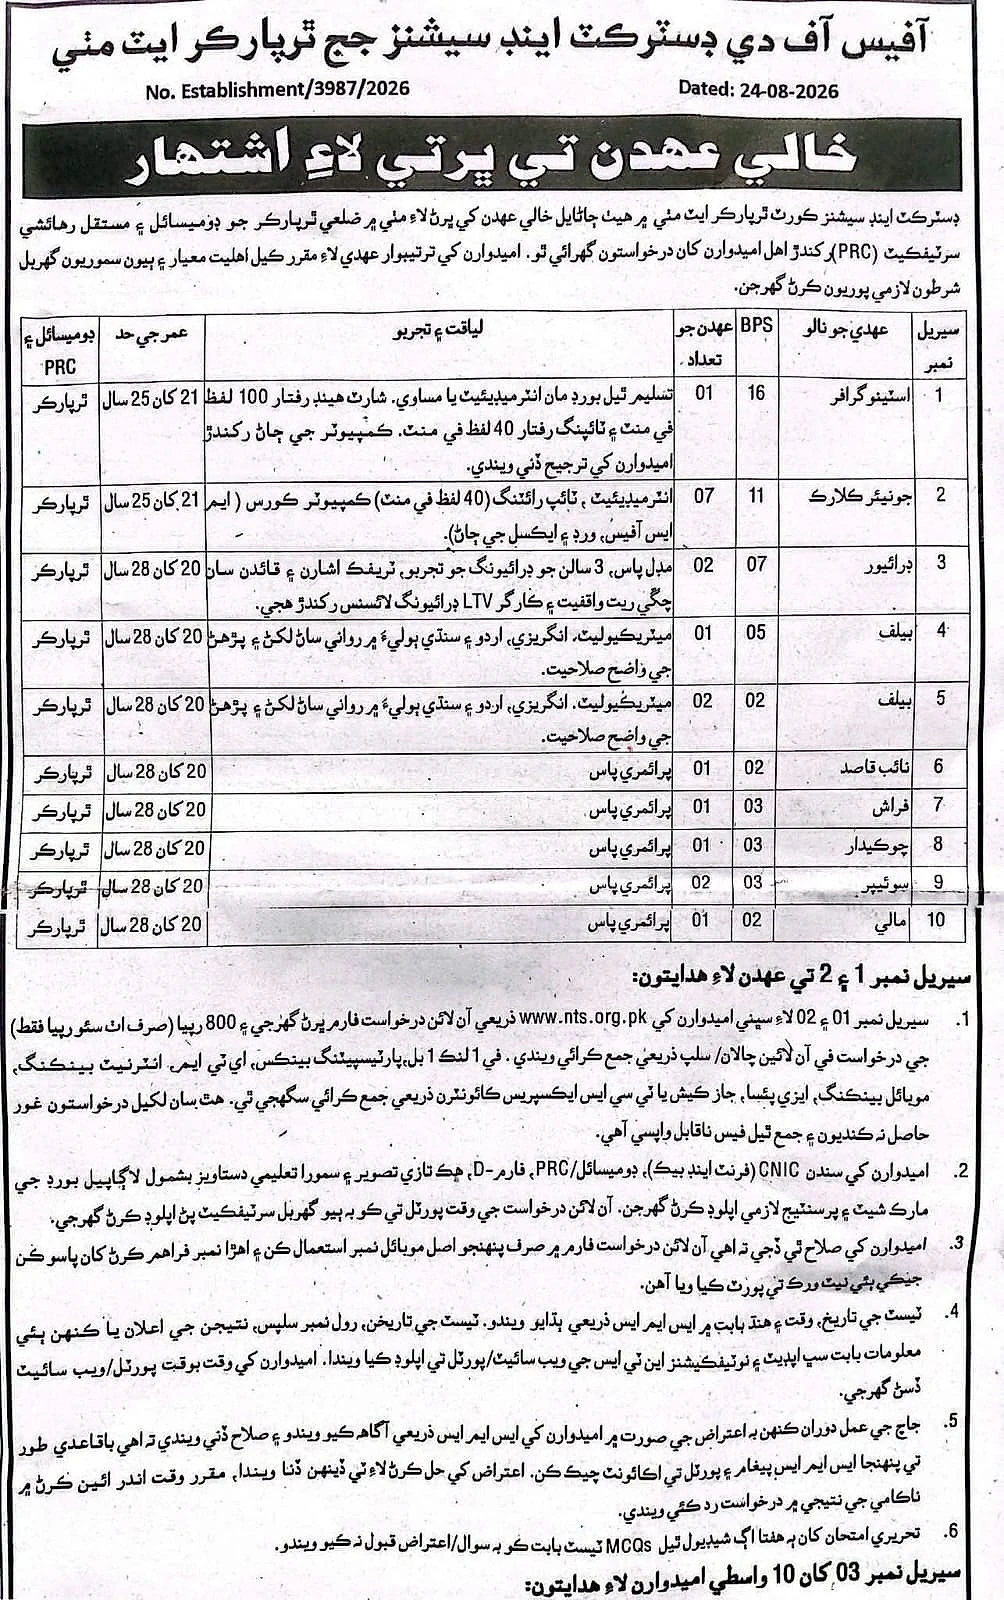 آفيس آف دي ڊسٽرڪٽ اينڊ سيشنز جج ٿرپارڪر ايٽ مٺي
No. Establishment/3987/2026
Dated: 24-08-2026
خالي عهدن تي ڀرتي لاءِ اشتهار
ڊسٽرڪٽ اينڊ سيشنز ڪورٽ ٿرپارڪر ايٽ مٺي ۾ هيٺ ڄاڻايل خالي عهدن کي ڀرڻ لاءِ مٺي ۾ ضلعي ٿرپارڪر جو ڊوميسائل ۽ مستقل رهائشي
سرٽيفڪيٽ (PRC) رکندڙ اهل اميدوارن کان درخواستون گهرائي ٿو. اميدوارن کي ترتيبوار عهدي لاءِ مقرر ڪيل اهليت معيار ۽ ٻيون سموريون گهربل
شرطون لازمي پوريون ڪرڻ گهرجن.
سيريل نمبر | عهدي جو نالو | BPS | عهدن جو تعداد | لياقت ۽ تجربو | عمر جي حد | ڊوميسائل ۽ PRC
1 | اسٽينوگرافر | 16 | 01 | تسليم ٿيل بورڊ مان انٽرميڊيئيٽ يا مساوي. شارٽ هينڊ رفتار 100 لفظ | 21 کان 25 سال | ٿرپارڪر
في منٽ ۽ ٽائپنگ رفتار 40 لفظ في منٽ. ڪمپيوٽر جي ڄاڻ رکندڙ
اميدوارن کي ترجيح ڏني ويندي.
2 | جونيئر ڪلارڪ | 11 | 07 | انٽرميڊيئيٽ، ٽائپ رائٽنگ (40 لفظ في منٽ) ڪمپيوٽر ڪورس (ايم | 21 کان 25 سال | ٿرپارڪر
ايس آفيس، ورڊ ۽ ايڪسل جي ڄاڻ).
3 | ڊرائيور | 07 | 02 | مڊل پاس، 3 سالن جو ڊرائيونگ جو تجربو، ٽريفڪ اشارن ۽ قائدن سان | 20 کان 28 سال | ٿرپارڪر
چڱي ريت واقفيت ۽ ڪارگر LTV ڊرائيونگ لائسنس رکندڙ هجي.
4 | بيلف | 05 | 01 | ميٽريڪيوليٽ، انگريزي، اردو ۽ سنڌي ٻوليءَ ۾ رواني ساڻ لکڻ ۽ پڙهڻ | 20 کان 28 سال | ٿرپارڪر
جي واضح صلاحيت.
5 | بيلف | 02 | 02 | ميٽريڪيوليٽ، انگريزي، اردو ۽ سنڌي ٻوليءَ ۾ رواني ساڻ لکڻ ۽ پڙهڻ | 20 کان 28 سال | ٿرپارڪر
جي واضح صلاحيت.
6 | نائب قاصد | 02 | 01 | پرائمري پاس | 20 کان 28 سال | ٿرپارڪر
7 | فراش | 03 | 01 | پرائمري پاس | 20 کان 28 سال | ٿرپارڪر
8 | چوڪيدار | 03 | 01 | پرائمري پاس | 20 کان 28 سال | ٿرپارڪر
9 | سوئيپر | 03 | 02 | پرائمري پاس | 20 کان 28 سال | ٿرپارڪر
10 | مالي | 02 | 01 | پرائمري پاس | 20 کان 28 سال | ٿرپارڪر
سيريل نمبر 1 ۽ 2 تي عهدن لاءِ هدايتون:
1. سيريل نمبر 01 ۽ 02 لاءِ سڀني اميدوارن کي www.nts.org.pk ذريعي آن لائن درخواست فارم ڀرڻ گهرجي ۽ 800 رپيا (صرف اٺ سئو رپيا فقط)
جي درخواست في آن لائين چالان/ سلپ ذريعي جمع ڪرائي ويندي. في 1 لنڪ 1 بل، پارٽيسپيٽنگ بينڪس، اي ٽي ايم، انٽرنيٽ بينڪنگ،
موبائل بينڪنگ، ايزي پئسا، جاز ڪيش يا ٽي سي ايس ايڪسپريس ڪائونٽرن ذريعي جمع ڪرائي سگهجي ٿي. هٿ سان لکيل درخواستون غور
حاصل نه ڪنديون ۽ جمع ٿيل فيس ناقابل واپسي آهي.
2. اميدوارن کي سندن CNIC (فرنٽ اينڊ بيڪ)، ڊوميسائل/PRC، فارم-D، هڪ تازي تصوير ۽ سمورا تعليمي دستاويز بشمول لاڳاپيل بورڊ جي
مارڪ شيٽ ۽ پرسنٽيج لازمي اپلوڊ ڪرڻ گهرجن. آن لائن درخواست جي وقت پورٽل تي ڪو به ٻيو گهربل سرٽيفڪيٽ پڻ اپلوڊ ڪرڻ گهرجي.
3. اميدوارن کي صلاح ٿي ڏجي ته اهي آن لائن درخواست فارم ۾ صرف پنهنجو اصل موبائل نمبر استعمال ڪن ۽ اهڙا نمبر فراهم ڪرڻ کان پاسو ڪن
جيڪي ٻئي نيٽ ورڪ تي پورٽ ڪيا ويا آهن.
4. ٽيسٽ جي تاريخ، وقت ۽ هنڌ بابت ۾ ايس ايم ايس ذريعي ٻڌايو ويندو. ٽيسٽ جي تاريخن، رول نمبر سلپس، نتيجن جي اعلان يا ڪنهن ٻئي
معلومات بابت سڀ اپڊيٽ ۽ نوٽيفڪيشنز اين ٽي ايس جي ويب سائيٽ/پورٽل تي اپلوڊ ڪيا ويندا. اميدوارن کي وقت بوقت پورٽل/ويب سائيٽ
ڏسڻ گهرجي.
5. جاچ جي عمل دوران ڪنهن به اعتراض جي صورت ۾ اميدوارن کي ايس ايم ايس ذريعي آگاهه ڪيو ويندو ۽ صلاح ڏني ويندي ته اهي باقاعدي طور
تي پنهنجا ايس ايم ايس پيغام ۽ پورٽل تي اڪائونٽ چيڪ ڪن. اعتراض کي حل ڪرڻ لاءِ ٽي ڏينهن ڏنا ويندا، مقرر وقت اندر ائين ڪرڻ ۾
ناڪامي جي نتيجي ۾ درخواست رد ڪئي ويندي.
6. تحريري امتحان کان ٻه هفتا اڳ شيڊيول ٿيل MCQs ٽيسٽ بابت ڪو به سوال/اعتراض قبول نه ڪيو ويندو.
سيريل نمبر 03 کان 10 واسطي اميدوارن لاءِ هدايتون: